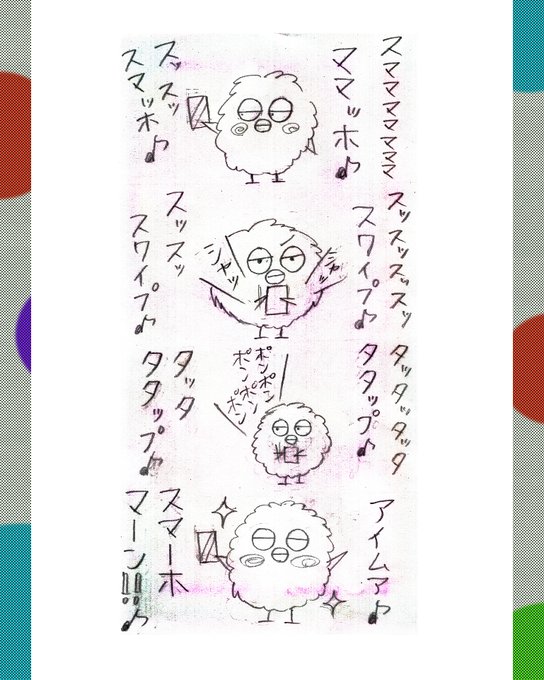 スマママママママ
ママッホ♪
スッスッ
スマッホ♪
スッスッスッスッ
スワイプ♪
シャッ
シャッ
スッスッ
スワイプ♪
タッタッタッタ
タタップ♪
ポンポン
ポンポン
ポン
タッタ
タタップ♪
アイムア♪
スマーホ
マーン!!♪